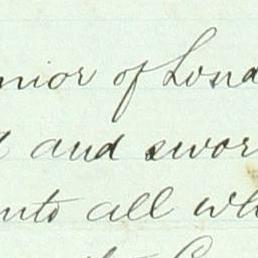 nior of Lond
and swor
nto all wh